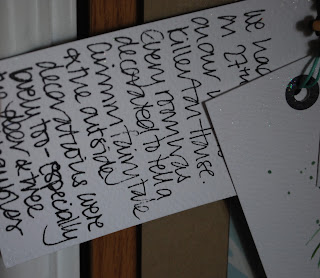 We had
on 27th
our
Killerton House.
Every room was
decorated to tell a
Grimm fairy tale
& the outside
decorations were
lovely too especially
the deer & three